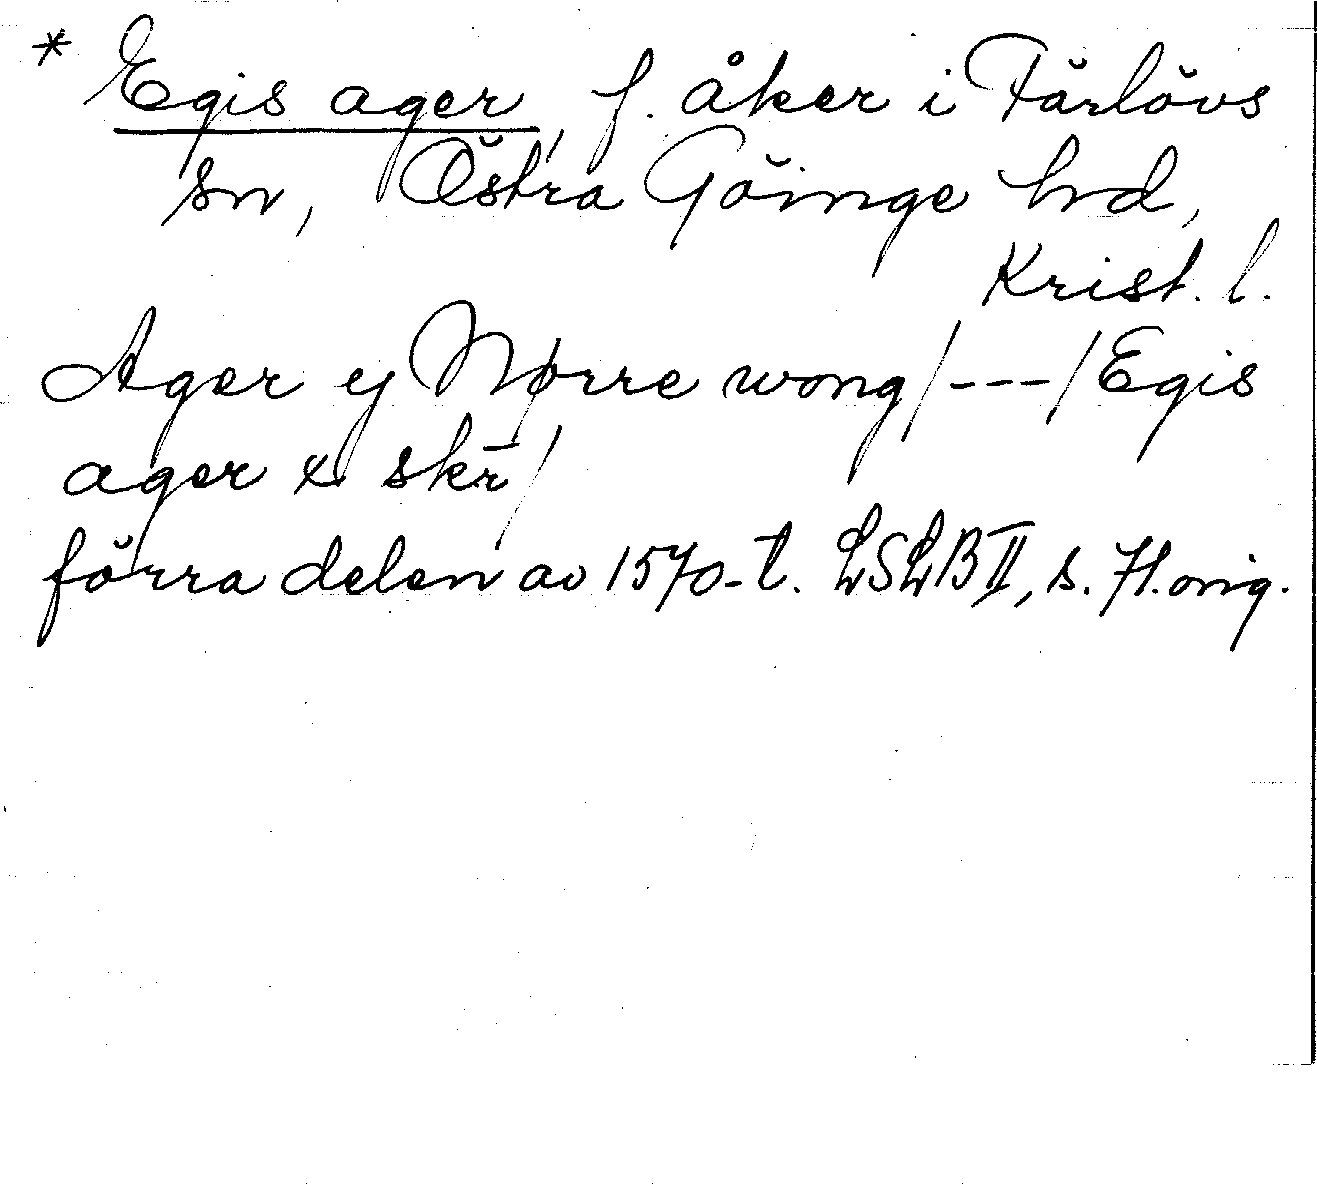 * Egis ager, f. åker i Färlövs
sn, Östra Göinge hrd,
Krist. l.
Ager y Nørre wong /---/ Egis
ager x skr̄ /
förra delen av 1570-t. LSLB II, s. 71. orig.